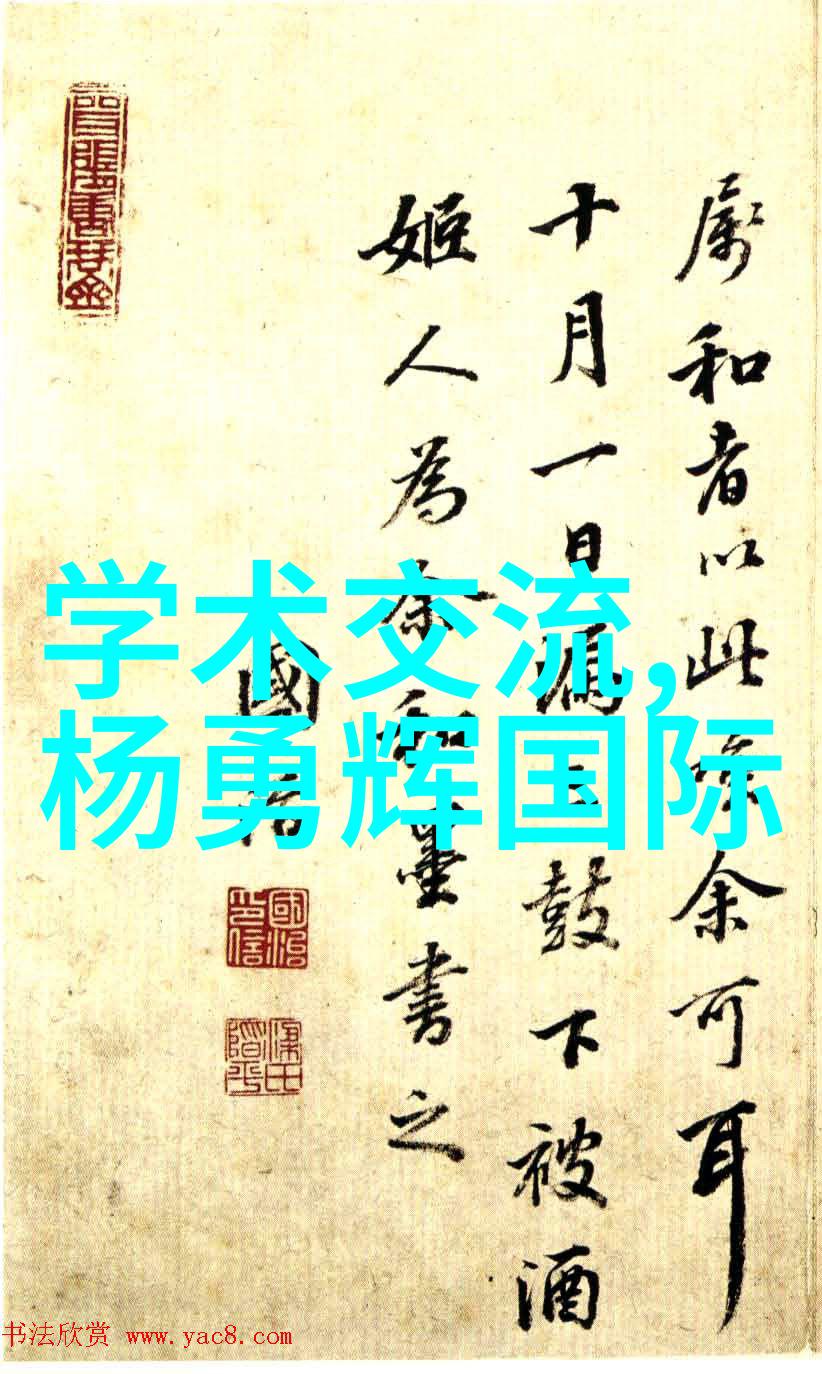 属和者以此余可耳
十月一日漏三鼓下被酒
姬人為余和墨書之
國治
國治印信
学术交流,
杨勇辉国际
书法欣赏 www.yac8.com